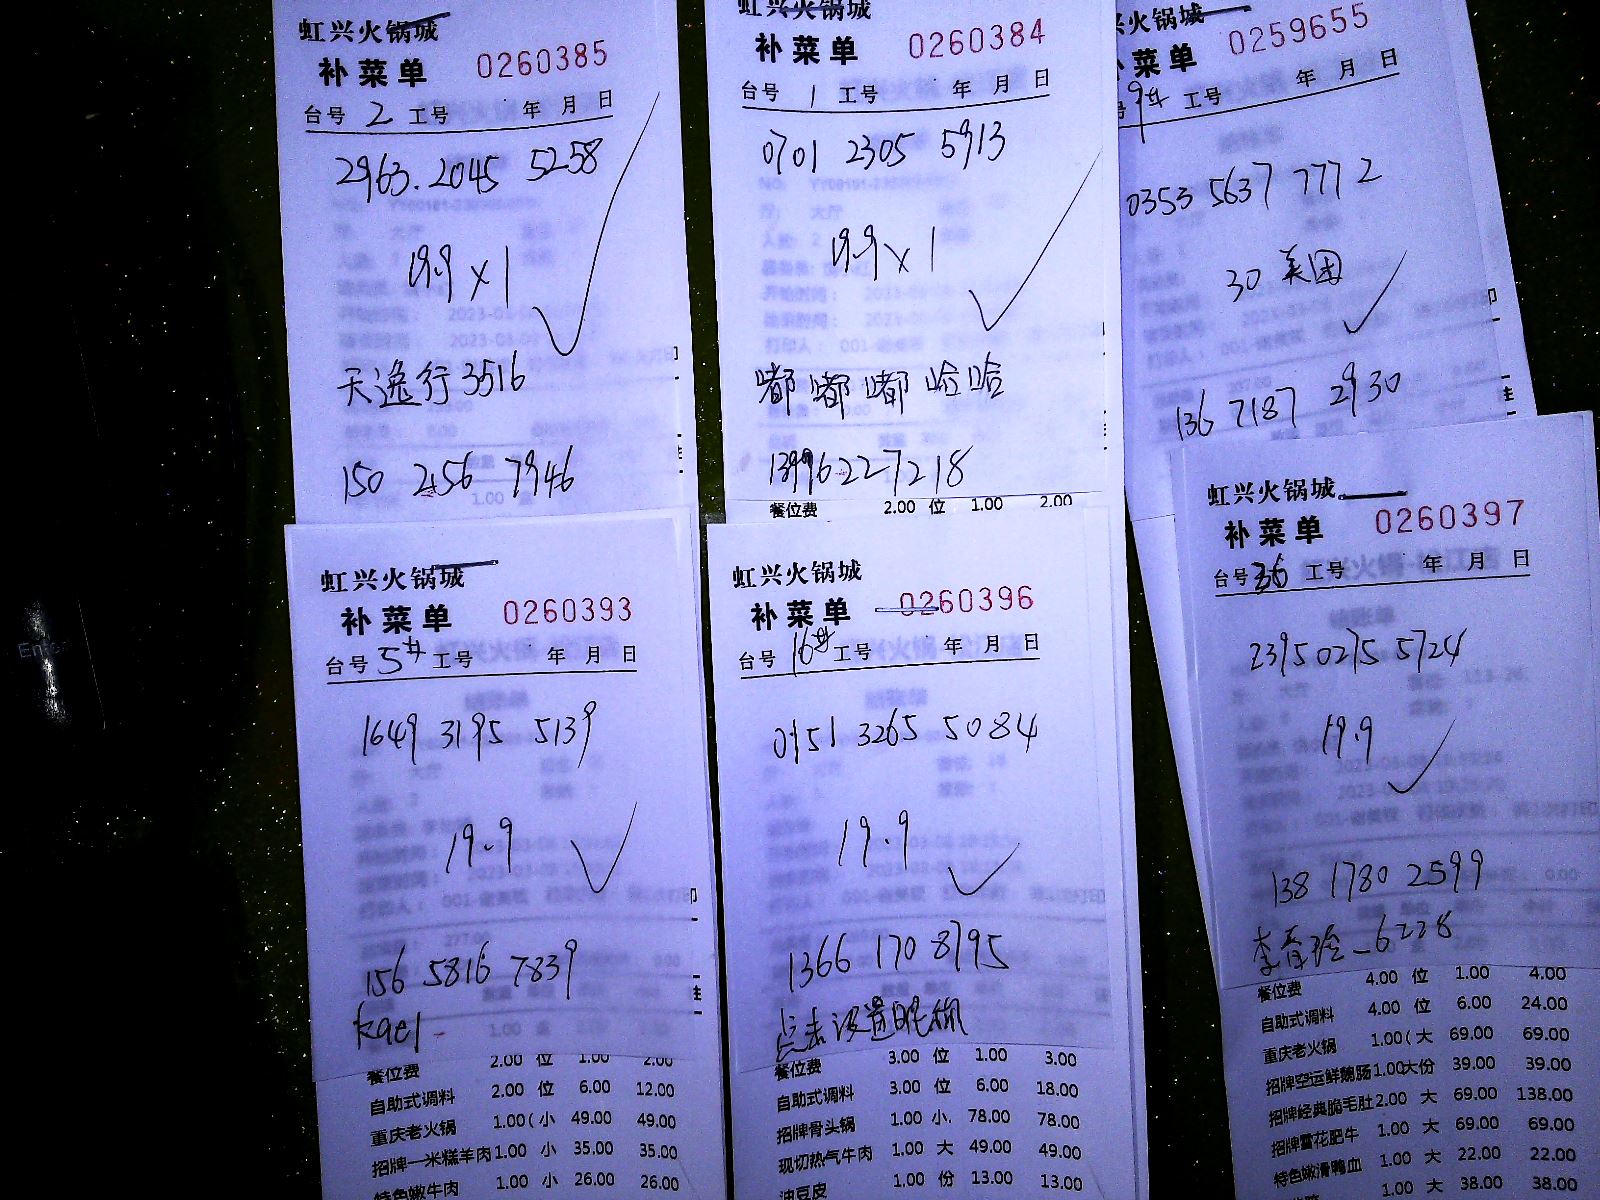 虹兴火锅城
补菜单 0260385
台号 2 工号 年 月 日
2963.2045 5258
19.9 x 1
天逸行3516
150 2456 7946
虹兴火锅城
补菜单 0260384
台号 1 工号 年 月 日
0701 2305 5913
19.9 x 1
嘟嘟嘟哈哈
13996227218
餐位费 2.00 位 1.00 2.00
火锅城
菜单 0259655
9# 工号 年 月 日
0353 5637 7772
30 美团
136 7187 2930
虹兴火锅城
补菜单 0260393
台号 5# 工号 年 月 日
1649 3195 5139
19.9
156 5816 7839
kael
餐位费 2.00 位 1.00 2.00
自助式调料 2.00 位 6.00 12.00
重庆老火锅 1.00( 小 49.00 49.00
招牌一米糕羊肉 1.00 小 35.00 35.00
特色嫩牛肉 1.00 小 26.00 26.00
虹兴火锅城
补菜单 0260396
台号 16# 工号 年 月 日
0151 3265 5084
19.9
1366 170 8795
点击设置昵称
餐位费 3.00 位 1.00 3.00
自助式调料 3.00 位 6.00 18.00
招牌骨头锅 1.00 小. 78.00 78.00
现切热气牛肉 1.00 大 49.00 49.00
油豆皮 1.00 份 13.00 13.00
虹兴火锅城
补菜单 0260397
台号 36 工号 年 月 日
2395 0275 5724
19.9
138 1780 2599
餐位费 4.00 位 1.00 4.00
自助式调料 4.00 位 6.00 24.00
重庆老火锅 1.00( 大 69.00 69.00
招牌空运鲜鹅肠 1.00 大份 39.00 39.00
招牌经典脆毛肚 2.00 大 69.00 138.00
招牌雪花肥牛 1.00 大 69.00 69.00
特色嫩滑鸭血 1.00 大 22.00 22.00
1.00 大 38.00 38.00